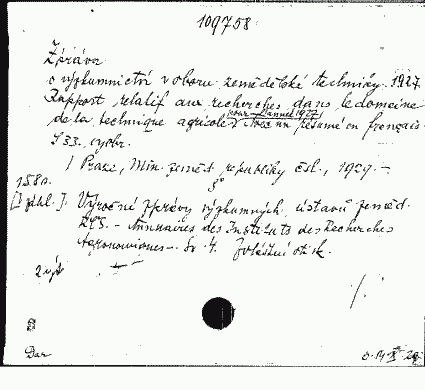 109758
Zpráva
o výzkumnictví v oboru zemědělské techniky. 1927.
Rapport relatif aux recherches dans le domaine
de la technique agricole pour l'année 1927 un résumé en français.
S 33. vyobr.
Praze, Min. zeměd. republiky čsl., 1929.-
8°
158 s.
Výroční zprávy výzkumných ústavů zeměd.
- Annuaires des Instituts des Recherches
Agronomiques - Sv. 4. Zvláštní otisk.
2 výt.
Dar